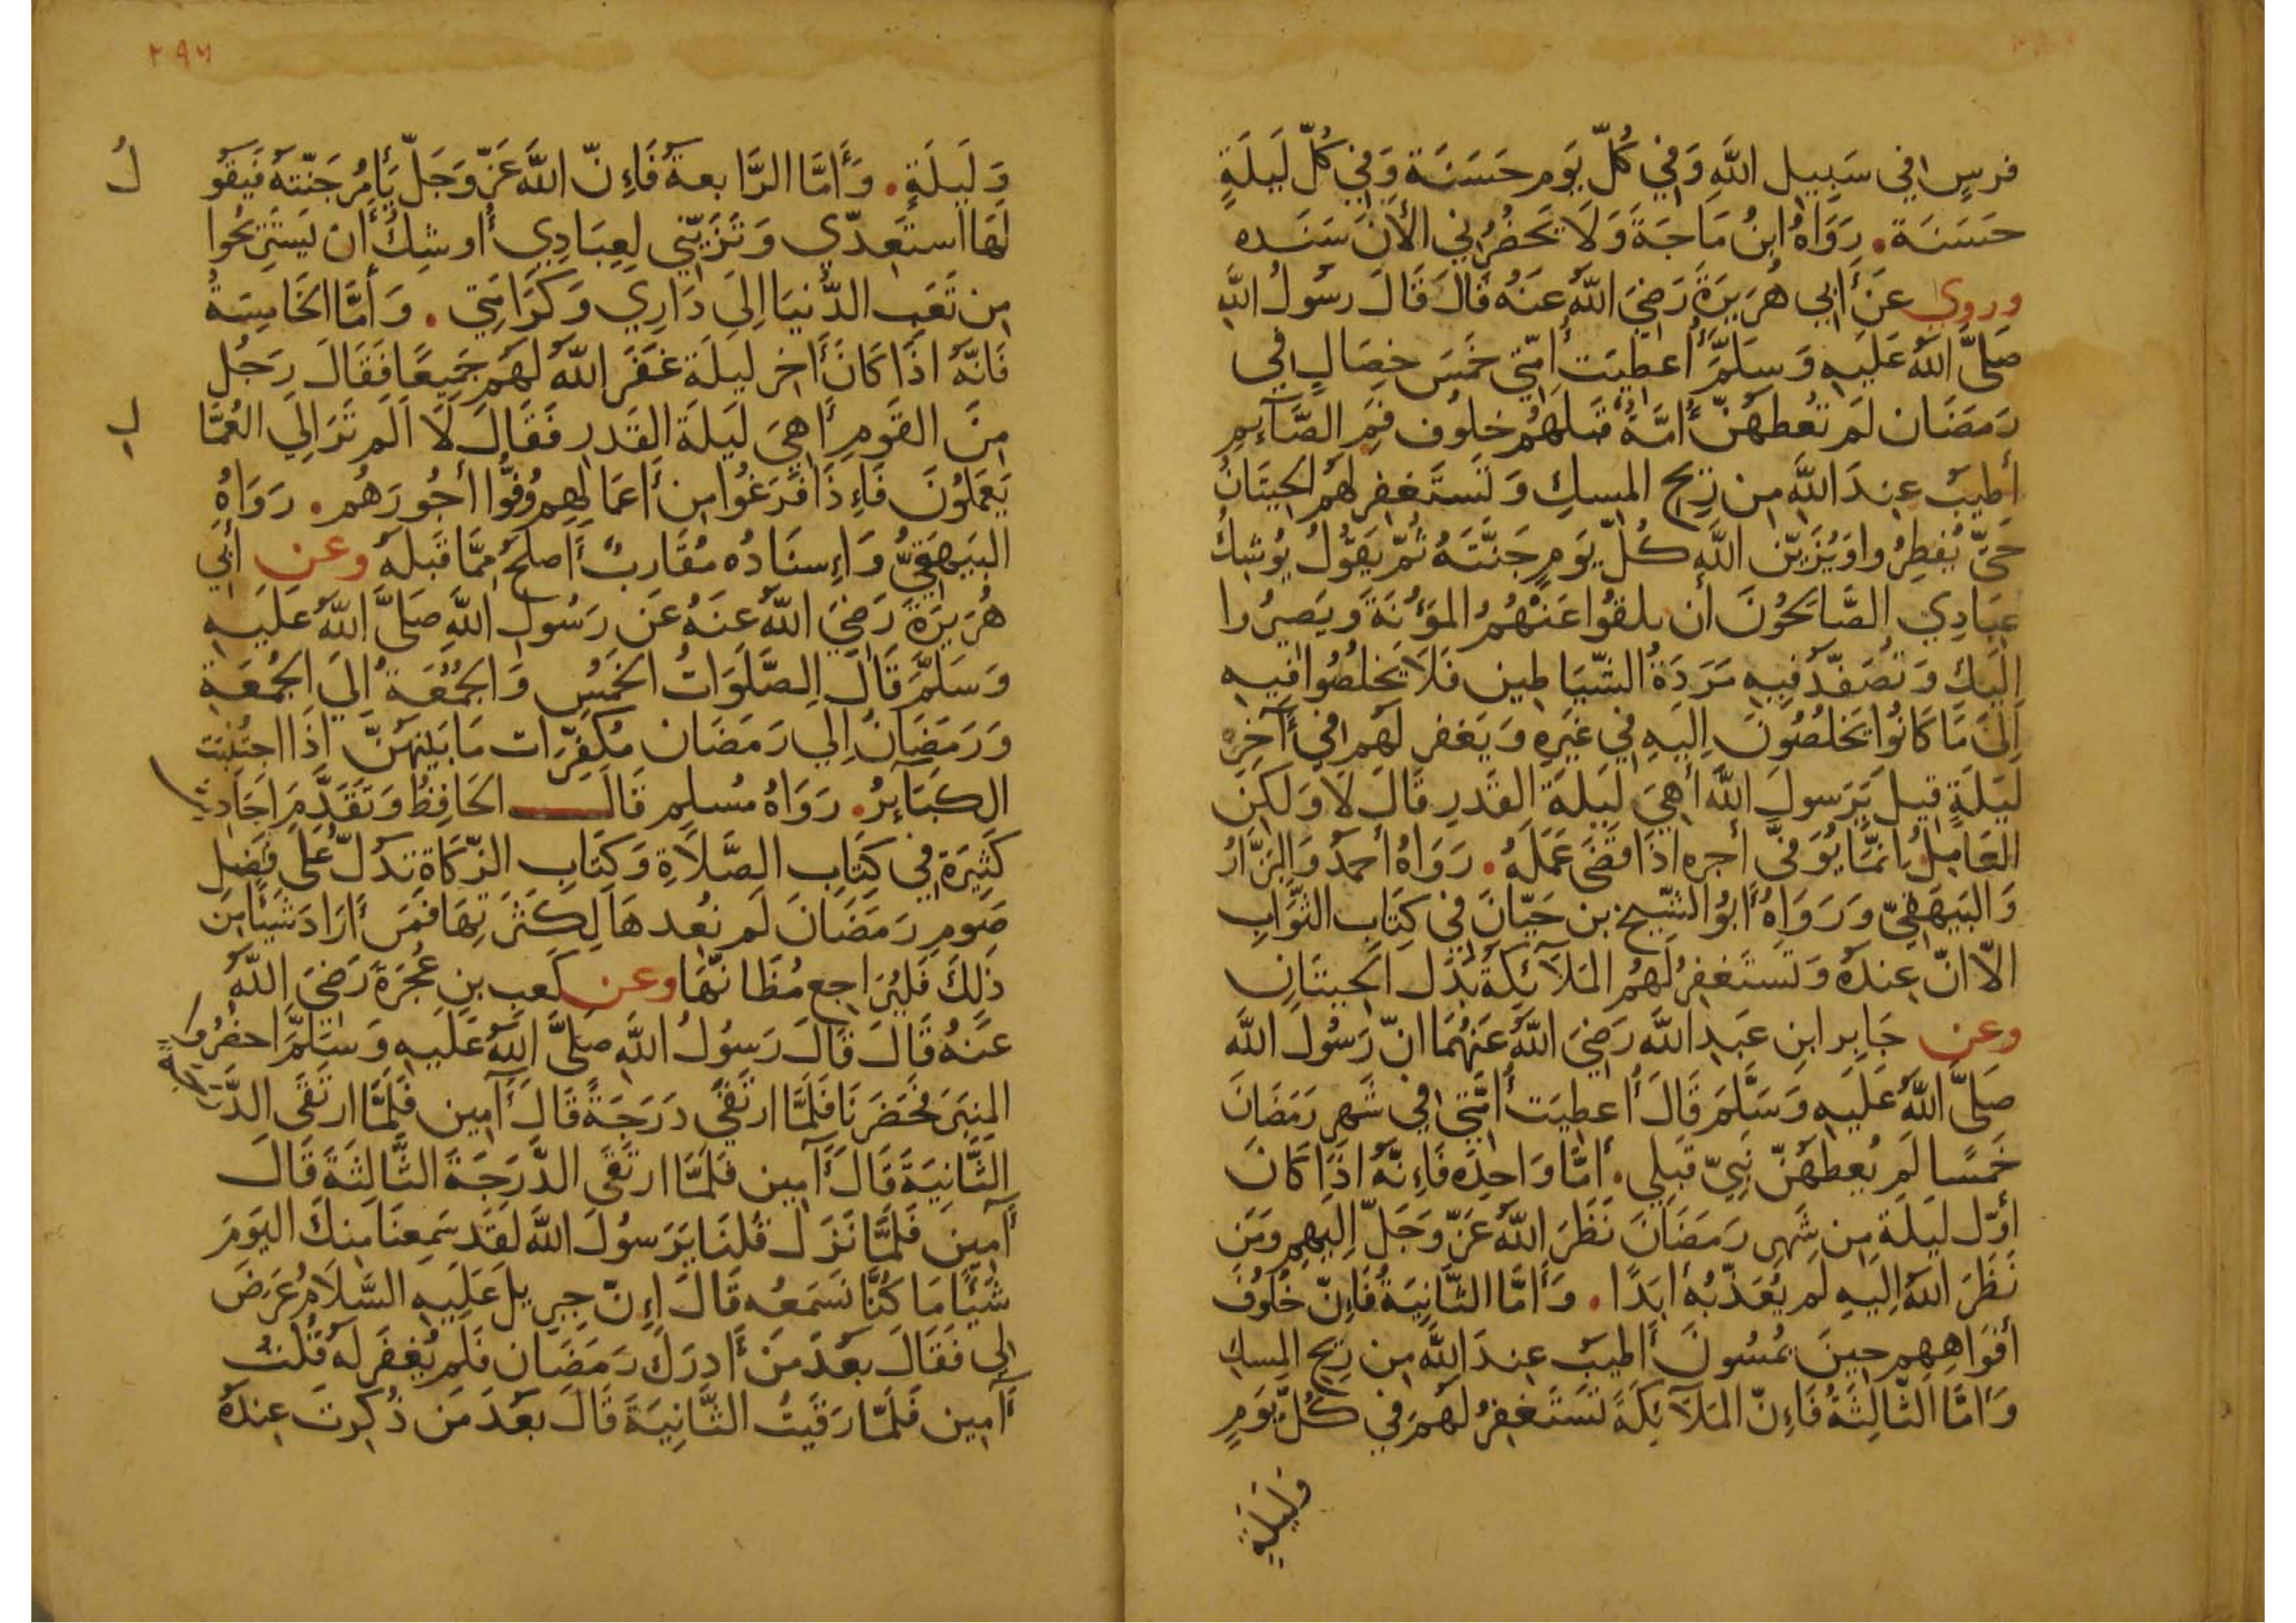 فرسٍ في سَبِيلِ اللَّهِ وَفي كُلّ يَوم حَسَنَة وَفي كُلّ لَيلَةٍ
حَسَنَة. رَوَاهُ ابنُ مَاجَةَ وَلَا يَحضُرُنِي الأَنَ سَنَده
وروي عَن أَبي هُرَيرَةَ رَضِيَ اللَّهُ عَنهُ قَالَ قَالَ رسُولُ اللَّهِ
صَلَّى اللَّهُ عَلَيهِ وَسَلَّمَ أُعطِيَت أُمَّتِي خَمسَ خِصَالٍ في
رَمَضَان لَم تُعطَهُنّ أُمَّةٌ قبَلَهُم خلُوف فَمِ الصَّآئِمِ
أَطيَبُ عِندَ اللَّهِ مِن رِيحِ المِسكِ وَتَستَغفِر لَهُم الحِيتَانُ
حَتَّى يُفطِرُوا وَيُزَيّن اللَّه كُلّ يَومٍ جَنَّتَهُ ثُمّ يَقُولُ يُوشِكُ
عِبَادِي الصَّالحُونَ أَن يلقُوا عَنهُمُ المَؤُنَةَ وَيَصِيرُوا
إِلَيكَ وَتُصَفَّد فِيهِ مَرَدَةُ الشّيَاطِين فَلَا يَخلُصُوا فِيهِ
إِلىَ مَا كَانُوا يَخلُصُونَ إِلَيهِ في غَيرِهِ وَيَغفر لَهُم في آخِرِ
لَيلَةٍ قِيلَ يَرَسولَ اللَّهِ أَهِيَ لَيلَة القَدرِ قَالَ لَا وَلَكِن
العَامِلُ إِنّمَا يُوَفىَّ أجره اذَا قَضَى عَمَلَهُ. رَوَاهُ أحمدُ وَالبَزَّارُ
وَالبَيهَقِيّ وَرَوَاهُ أَبُو الشّيخ بن حَيّانَ في كِتَابِ الثَّوَابِ
الاّ انّ عِندَهُ وَتَستَغفِرُ لَهُمُ المَلَآئِكَةُ بَدَل الحِيتَانِ
وعن جَابِر ابنِ عَبدِ اللَّه رَضِيَ اللَّهُ عَنهُمَا انّ رَسُولَ اللَّه
صَلَّى اللَّهُ عَلَيهِ وَسَلَّمَ قَالَ أُعطِيَت أُمَّتِي في شَهرِ رَمَضَانَ
خَمسًا لَم يُعطَهُنّ نَبِيّ قَبلِي. أَمَّا وَاحِدَه فَإِنّهُ اذَا كَانَ
أوّل لَيلَة مِن شَهرِ رَمَضَانَ نَظَرَ اللَّهُ عَزّ وَجَلّ إِلَيهِم وَمَن
نَظَرَ اللَّهُ إِلَيهِ لَم يُعَذّبهُ أبَدًا. وَأَمَّا الثّانِيَةُ فَإِنّ خُلُوفَ
أفوَاهِهِم حِينَ يُمسُونَ أَطيَبُ عِندَ اللَّهِ مِن رِيحِ المِسكِ
وَأمَّا الثّالِثَةُ فَإِنّ المَلَآئِكَةَ تَستَغفِرُ لَهُم في كُلِّ يَومٍ
وليلةٍ
٢٩٦
وَلَيلَةٍ. وَأَمَّا الرَّابعةُ فَإِنّ اللَّهَ عَزّ وَجَلّ يَأمُر جَنّتهُ فَيَقُو لُ
لَهَا استَعِدّي وَتَزَيّنِي لِعِبَادِي أوشِكُ أَن يَستَرِيحُوا
مِن تَعَبِ الدُّنيَا إِلىَ دَارِي وَكَرَامَتِي. وَأَمَّا الخَامِسَةُ
فَانّهُ اذَا كَانَ أَخِر لَيلَة غَفَرَ اللَّهُ لَهُم جَمِيعًا فَقَالَ رَجُل
مِنَ القَومِ أَهِيَ لَيلَةُ القَدرِ فَقَالَ لَا أَلَم تَرَ إِلى العُمَّا لِ
يَعمَلُونَ فَإِذَا فَرَغُوا مِن أَعمَالِهِم وُفُّوا أجُورَهُم. رَوَاهُ
البَيهَقِيُّ وَإِسنَادُه مُقَارِبٌ أَصلَحُ مِمَّا قَبلَه وعن أَبي
هُرَيرَةَ رَضِيَ اللَّهُ عَنهُ عَن رَسُولِ اللَّهِ صَلَّى اللَّهُ عَلَيهِ
وَسَلَّمَ قَالَ الصَّلَوَاتُ الخَمسُ وَالجُمُعَةُ إِلىَ الجُمعَةِ
وَرَمَضَانُ إِلى رَمَضَان مُكَفِّرَات مَا بَينَهُنّ اذَا اجتُنِبَت
الكَبَآئِرُ. رَوَاهُ مُسلِم قَالَ الحَافِظُ وَتَقَدَّمَ احَادِيثُ
كَثِيرَة في كِتَابِ الصَّلَاةِ وَكِتَابِ الزّكَاة تَدُلّ عَلى فَضلِ
صَومِ رَمَضَانَ لَم نُعدهَا لِكَثرَتِهَا فَمَن أَرَادَ شَيئًا مِن
ذَلِكَ فَليُرَاجع مُظَانّهَا وعن كَعبِ بنِ عُجرَةَ رَضِيَ اللَّهُ
عَنهُ قَالَ قَالَ رَسُولُ اللَّهِ صَلَّى اللَّهُ عَلَيهِ وَسَلَّمَ احضُرُوا
المِنبَر فَحَضَرنَا فَلَمَّا ارتَقَى دَرَجَةً قَالَ آمِين فَلَمَّا ارتَقَى الدَّرَجَةَ
الثَّانِيَةَ قَالَ آمِين فَلَمَّا ارتَقَى الدَّرَجَةَ الثَّالِثَةَ قَالَ
آمِين فَلَمَّا نَزَل قُلنَا يَرَسُولَ اللَّهِ لَقَد سَمِعنَا مِنكَ اليَومَ
شَيئًا مَا كُنَّا نَسمَعُه قَالَ إِنّ جِبرِيل عَلَيهِ السَّلَامُ عَرَضَ
لِى فَقَالَ بعُدَ مَن أَدرَكَ رَمَضَان فَلَم يُغفَر لَهُ قُلتُ
آمِين فَلَمّا رَقَيتُ الثَّانِيَةَ قَالَ بَعُدَ مَن ذُكِرتَ عِندَهُ